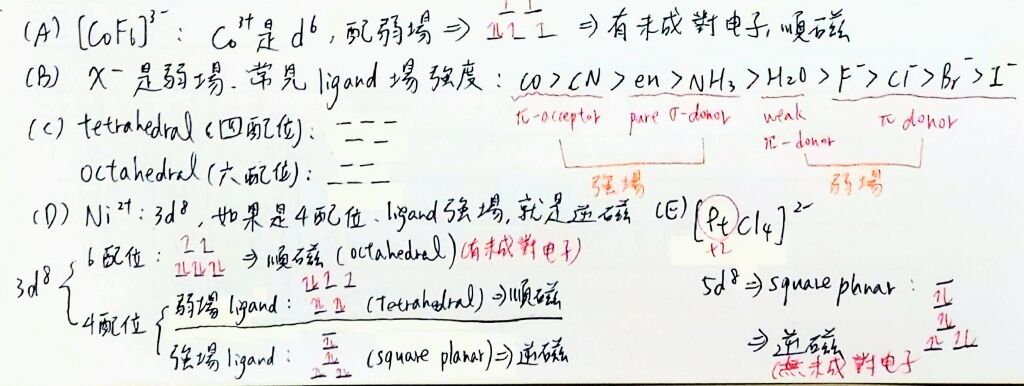 (A) [CoF6]3- : Co3+是d6, 配弱場 ⇒ ⇒ 有未成對电子, 順磁
(B) X-是弱場. 常見ligand場強度 : CO > CN > en > NH3 > H2O > F- > Cl- > Br- > I-
π-acceptor pure σ-donor weak π-donor π donor
強場 弱場
(C) tetrahedral (四配位) :
octahedral (六配位) :
(D) Ni2+ : 3d8, 如果是4配位、ligand強場, 就是逆磁
3d8
6配位 : ⇒ 順磁 (octahedral) (有未成對电子)
4配位
弱場ligand : (tetrahedral) ⇒ 順磁
強場ligand : (square planar) ⇒ 逆磁
(E) [PtCl4]2-
+2
5d8 ⇒ square planar :
⇒ 逆磁
(無未成對电子